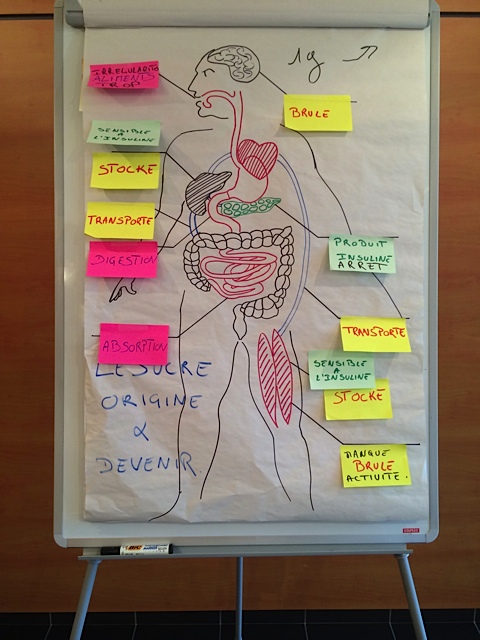 1g
ALIMENTS
TROP
BRULE
SENSIBLE
A
L'INSULINE
STOCKE
TRANSPORTE
DIGESTION
PRODUIT
INSULINE
ARRET
ABSORPTION
TRANSPORTE
SENSIBLE
A
L'INSULINE
STOCKE
LE SUCRE
ORIGINE
&
DEVENIR.
MANQUE
BRULE
ACTIVITE.
BIC